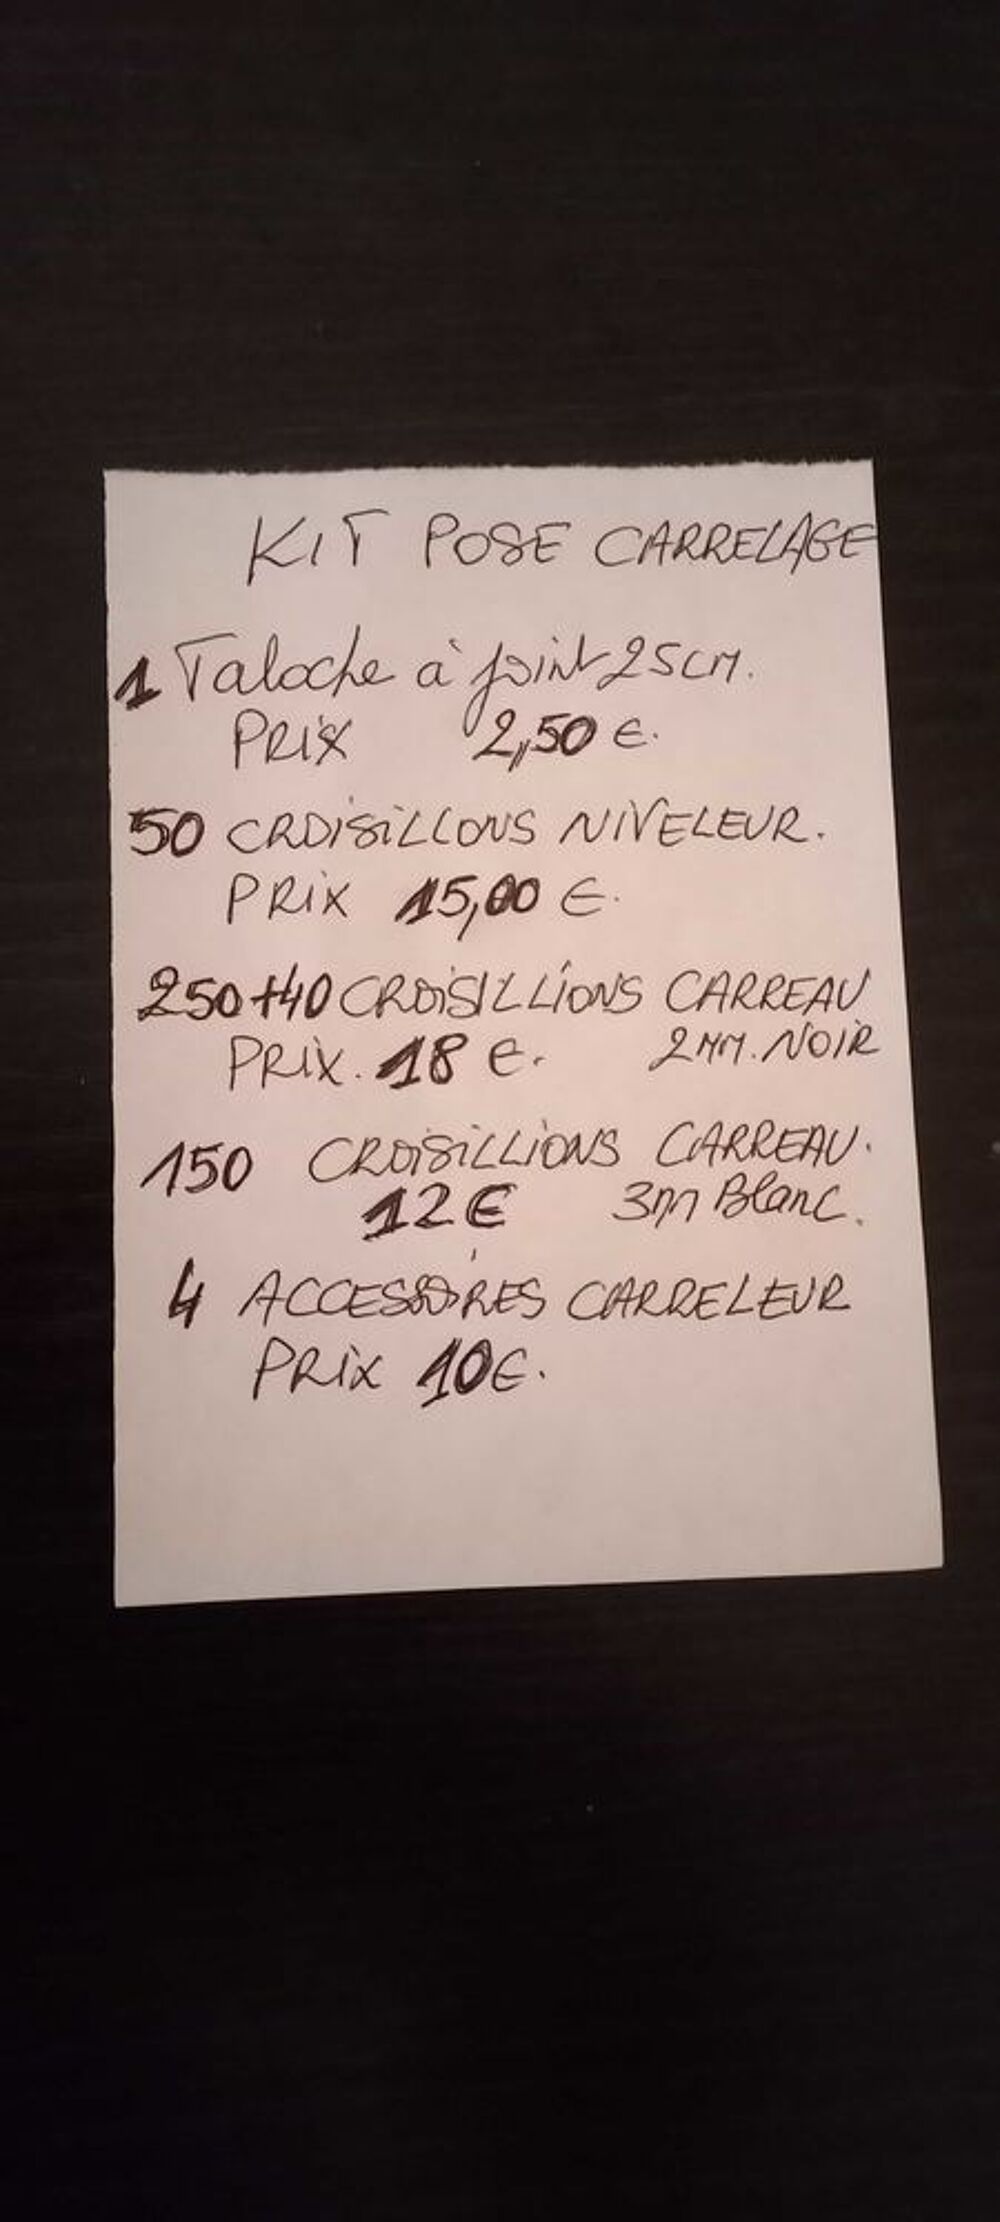 KIT POSE CARRELAGE
1 Taloche à joint 25CM.
PRIX 2,50 €.
50 CROISILLONS NIVELEUR.
PRIX 15,00 €.
250+40 CROISILLIONS CARREAU
PRIX. 18 €. 2MM. NOIR
150 CROISILLIONS CARREAU.
12€ 3mm Blanc.
4 ACCESSOIRES CARRELEUR
PRIX 10€.